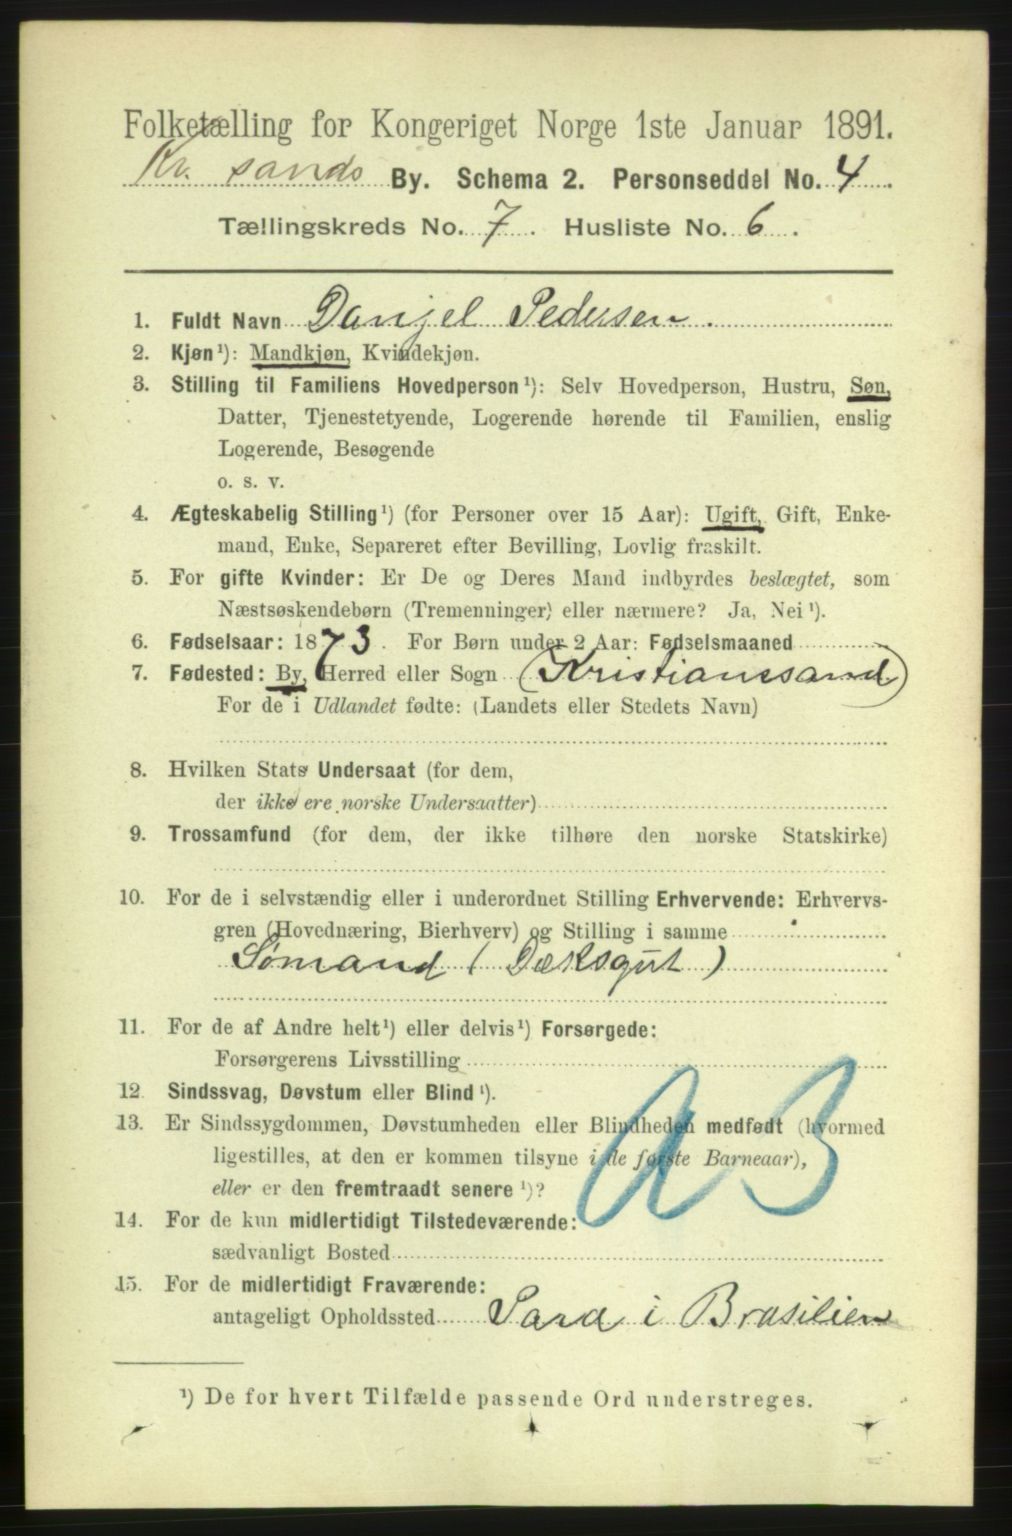 Folketælling for Kongeriget Norge 1ste Januar 1891.
Kr. sands By. Schema 2. Personseddel No. 4.
Tællingskreds No. 7. Husliste No. 6.
1. Fuldt Navn Danjel Pedersen.
2. Kjøn¹): Mandkjøn, Kvindekjøn.
3. Stilling til Familiens Hovedperson¹): Selv Hovedperson, Hustru, Søn,
Datter, Tjenestetyende, Logerende hørende til Familien, enslig
Logerende, Besøgende
o. s. v.
4. Ægteskabelig Stilling¹) (for Personer over 15 Aar): Ugift, Gift, Enke-
mand, Enke, Separeret efter Bevilling, Lovlig fraskilt.
5. For gifte Kvinder: Er De og Deres Mand indbyrdes beslægtet, som
Næstsøskendebørn (Tremenninger) eller nærmere? Ja, Nei¹).
6. Fødselsaar: 1873. For Børn under 2 Aar: Fødselsmaaned
7. Fødested: By, Herred eller Sogn (Kristianssand)
For de i Udlandet fødte: (Landets eller Stedets Navn)
8. Hvilken Stats Undersaat (for dem,
der ikke ere norske Undersaatter)
9. Trossamfund (for dem, der ikke tilhøre den norske Statskirke)
10. For de i selvstændig eller i underordnet Stilling Erhvervende: Erhvervs-
gren (Hovednæring, Bierhverv) og Stilling i samme
Sømand (Dæksgut)
11. For de af Andre helt¹) eller delvis¹) Forsørgede:
Forsørgerens Livsstilling
12. Sindssvag, Døvstum eller Blind¹).
13. Er Sindssygdommen, Døvstumheden eller Blindheden medfødt (hvormed
ligestilles, at den er kommen tilsyne i de første Barneaar),
eller er den fremtraadt senere¹)?
14. For de kun midlertidigt Tilstedeværende:
sædvanligt Bosted
15. For de midlertidigt Fraværende:
antageligt Opholdssted Para i Brasilien
¹) De for hvert Tilfælde passende Ord understreges.